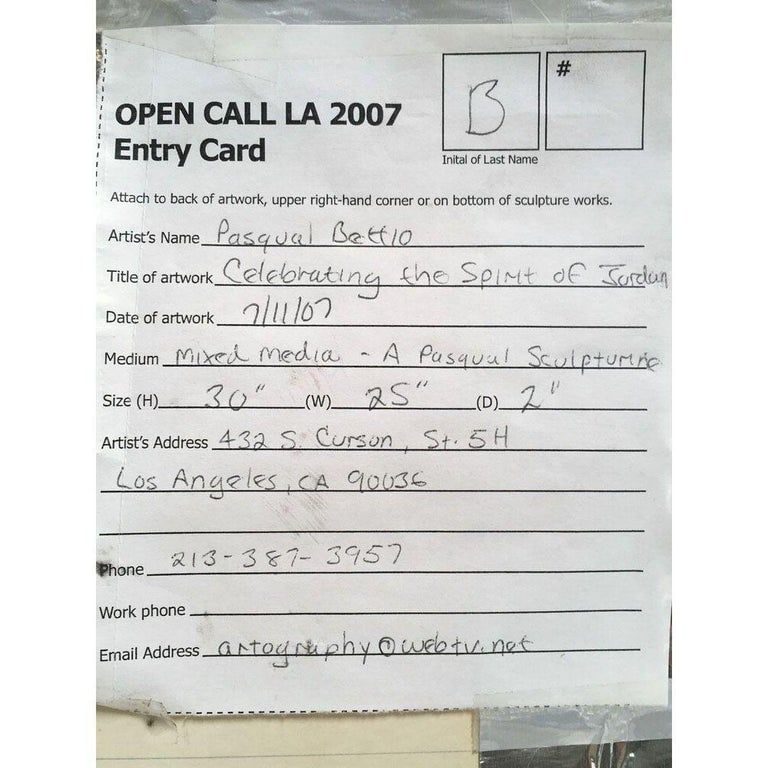 B
#
OPEN CALL LA 2007
Entry Card
Inital of Last Name
Attach to back of artwork, upper right-hand corner or on bottom of sculpture works.
Artist's Name Pasqual Bettio
Title of artwork Celebrating the Spirit of Jordan
Date of artwork 7/11/07
Medium Mixed Media - A Pasqual Sculpturine
Size (H) 30" (W) 25" (D) 2"
Artist's Address 432 S. Curson, St. 5H
Los Angeles, CA 90036
Phone 213-387-3957
Work phone
Email Address artography@webtv.net